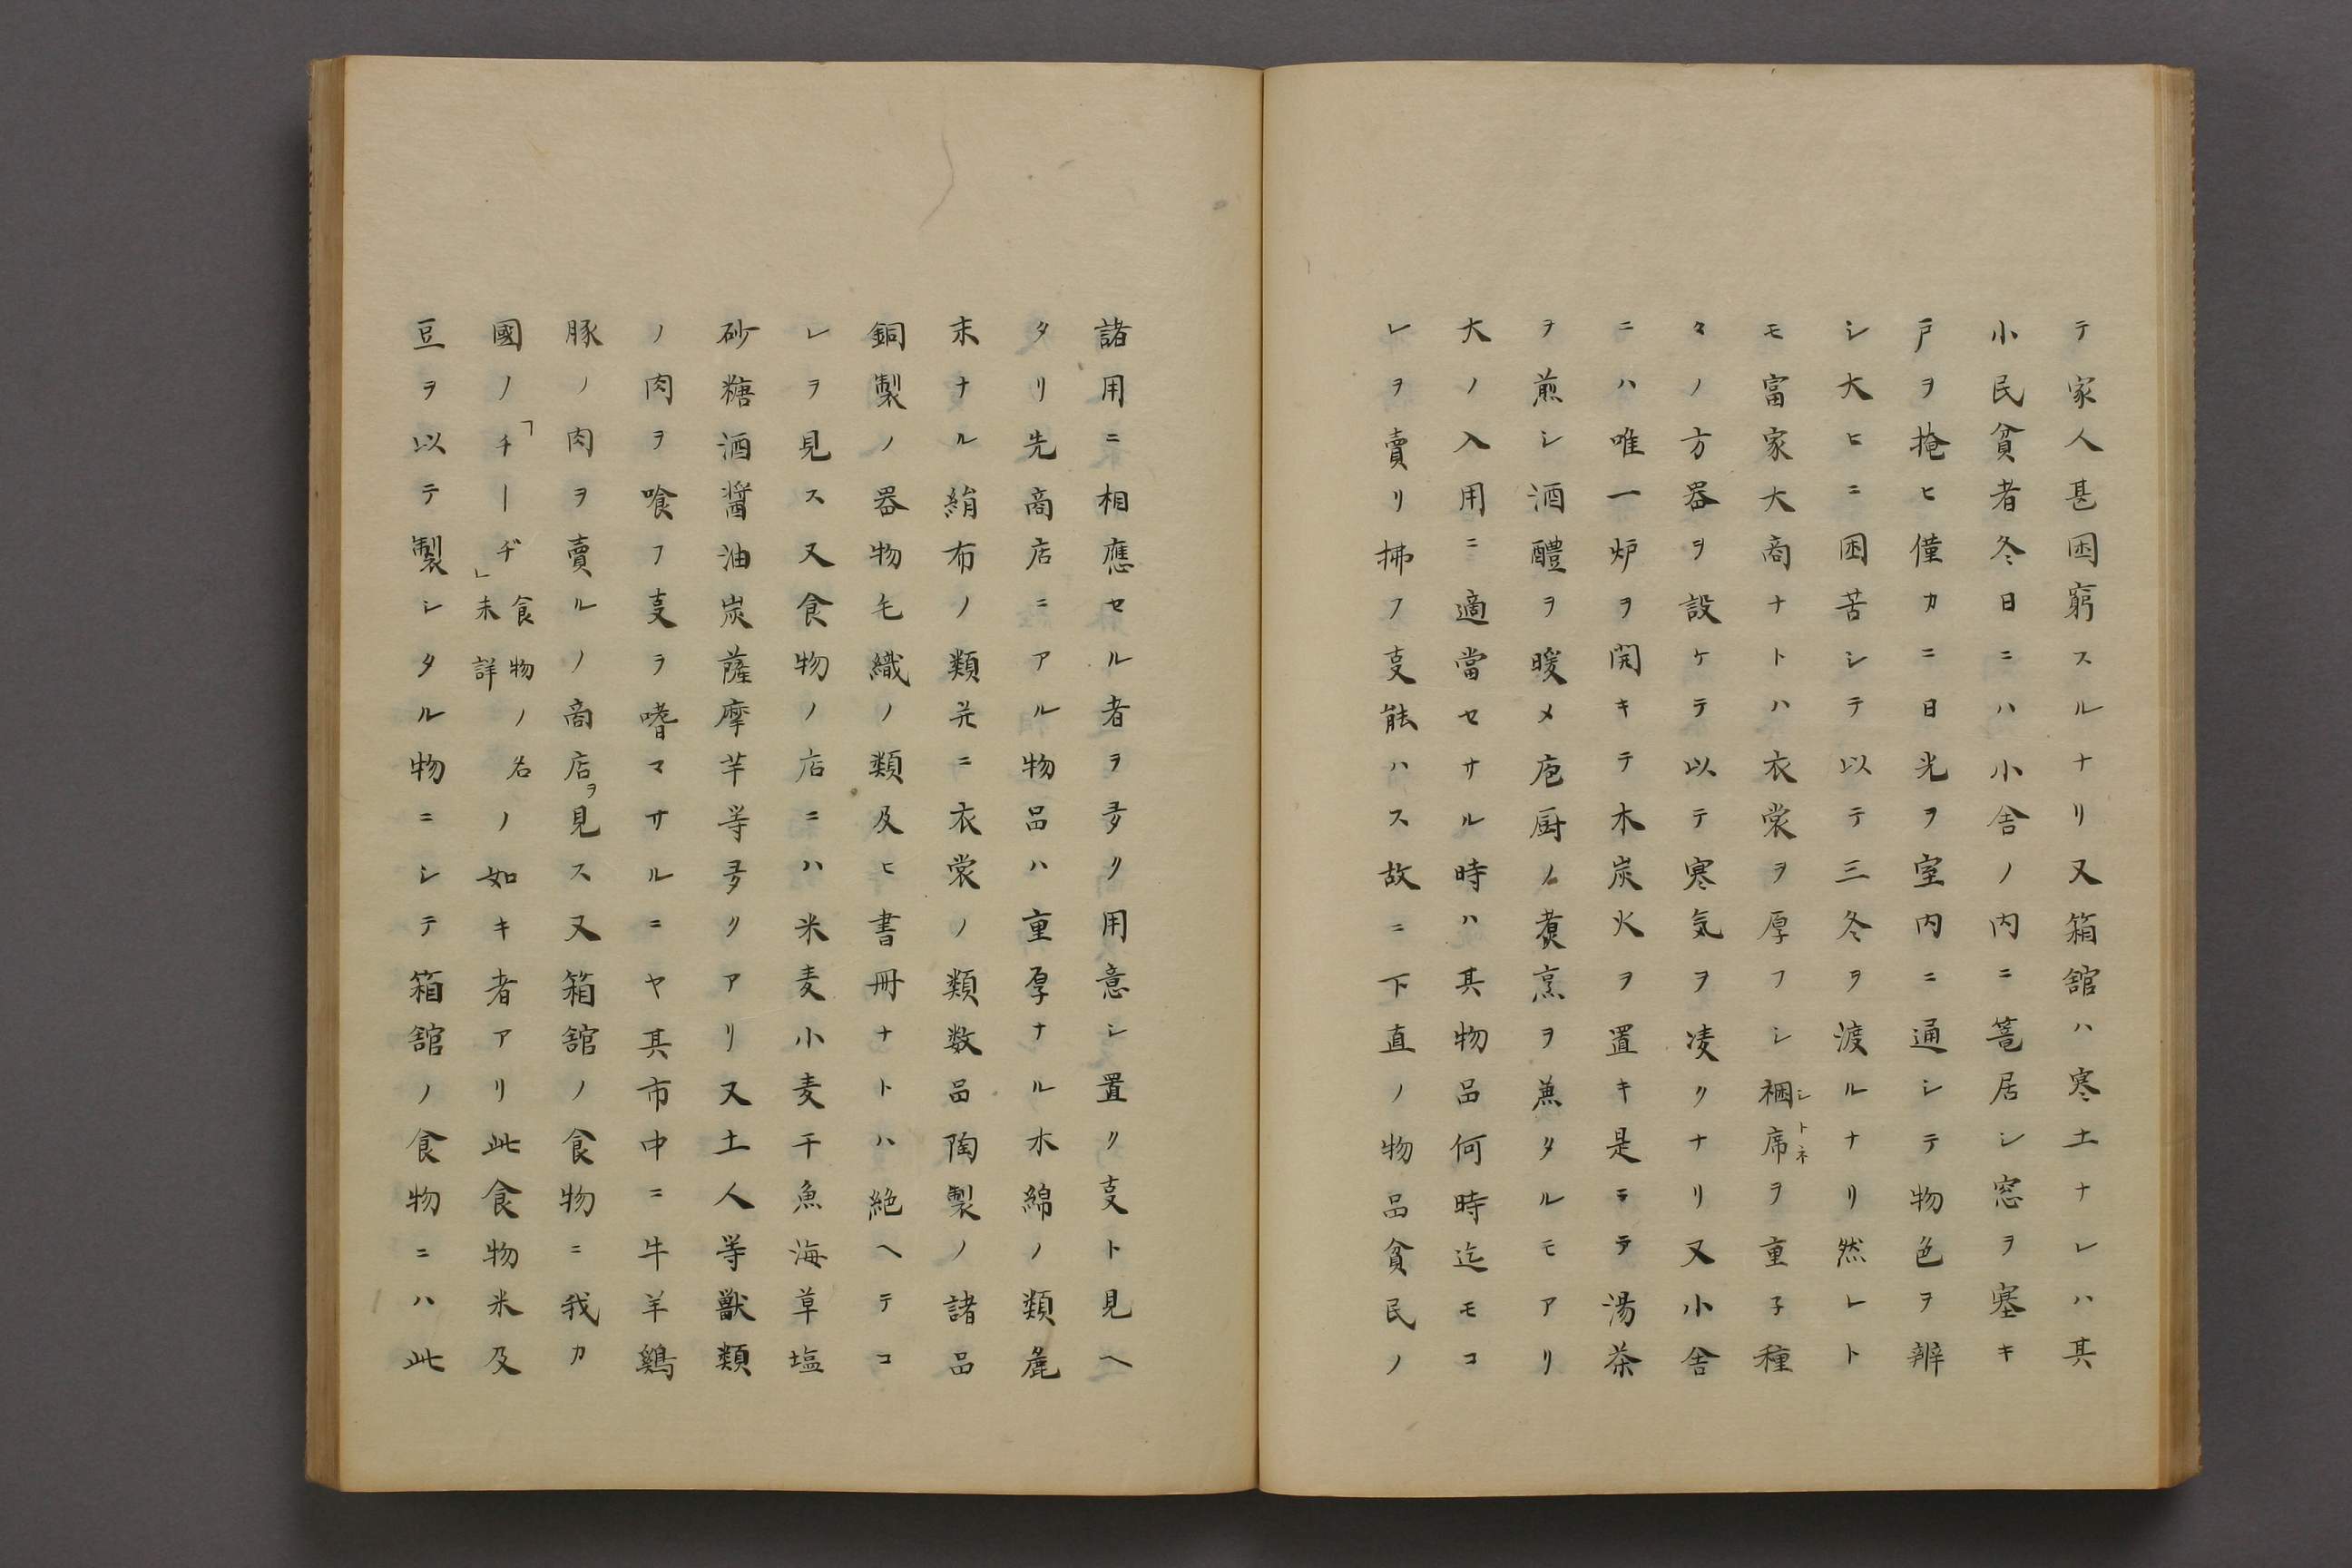 テ家人甚困窮スルナリ又箱舘ハ寒土ナレハ其
小民貧者冬日ニハ小舎ノ内ニ篭居シ窓ヲ塞キ
戸ヲ掩ヒ僅カニ日光ヲ室内ニ通シテ物色ヲ辨
シ大ヒニ困苦シテ以テ三冬ヲ渡ルナリ然レト
モ富家大商ナトハ衣裳ヲ厚フシ裀席シトネヲ重子種
々ノ方器ヲ設ケテ以テ寒気ヲ凌クナリ又小舎
ニハ唯一炉ヲ開キテ木炭火ヲ置キ是ニテ湯茶
ヲ煎シ酒醴ヲ暖メ庖厨ノ煮烹ヲ兼タルモアリ
大ノ入用ニ適當セサル時ハ其物品何時迄モコ
レヲ賣リ拂フ叓能ハス故ニ下直ノ物品貧民ノ
諸用ニ相應セル者ヲ多ク用意シ置ク叓ト見ヘ
タリ先商店ニアル物品ハ重厚ナル木綿ノ類麁
末ナル絹布ノ類并ニ衣裳ノ類数品陶製ノ諸品
銅製ノ器物毛織ノ類及ヒ書冊ナトハ絶ヘテコ
レヲ見ス又食物ノ店ニハ米麦小麦干魚海草塩
砂糖酒醤油炭薩摩芋等多クアリ又土人等獣類
ノ肉ヲ喰フ叓ヲ嗜マサルニヤ其市中ニ牛羊鷄
豚ノ肉ヲ賣ルノ商店ヲ見ス又箱舘ノ食物ニ我カ
國ノ「チーヂ」食物ノ名未詳ノ如キ者アリ此食物米及
豆ヲ以テ製シタル物ニシテ箱舘ノ食物ニハ此